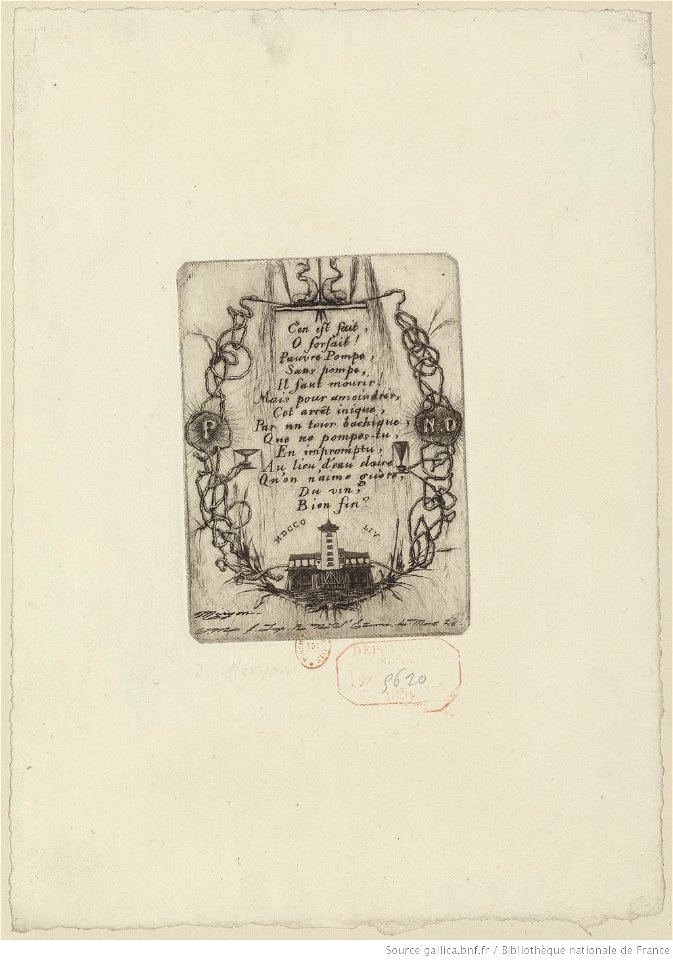 C'en est fait,
O forfait!
Pauvre Pompe,
Sans pompe,
Il faut mourir!
Mais pour amoindrir,
Cet arrêt inique,
Par un tour bachique,
Que ne pompes-tu,
En impromptu,
Au lieu d'eau claire
Qu'on n'aime guère,
Du vin,
Bien fin?
P
N D
MDCCC LIV.
Meryon
Imp. R. Nve St Etienne du Mont 26.
Meryon
9620
Source gallica.bnf.fr / Bibliothèque nationale de France